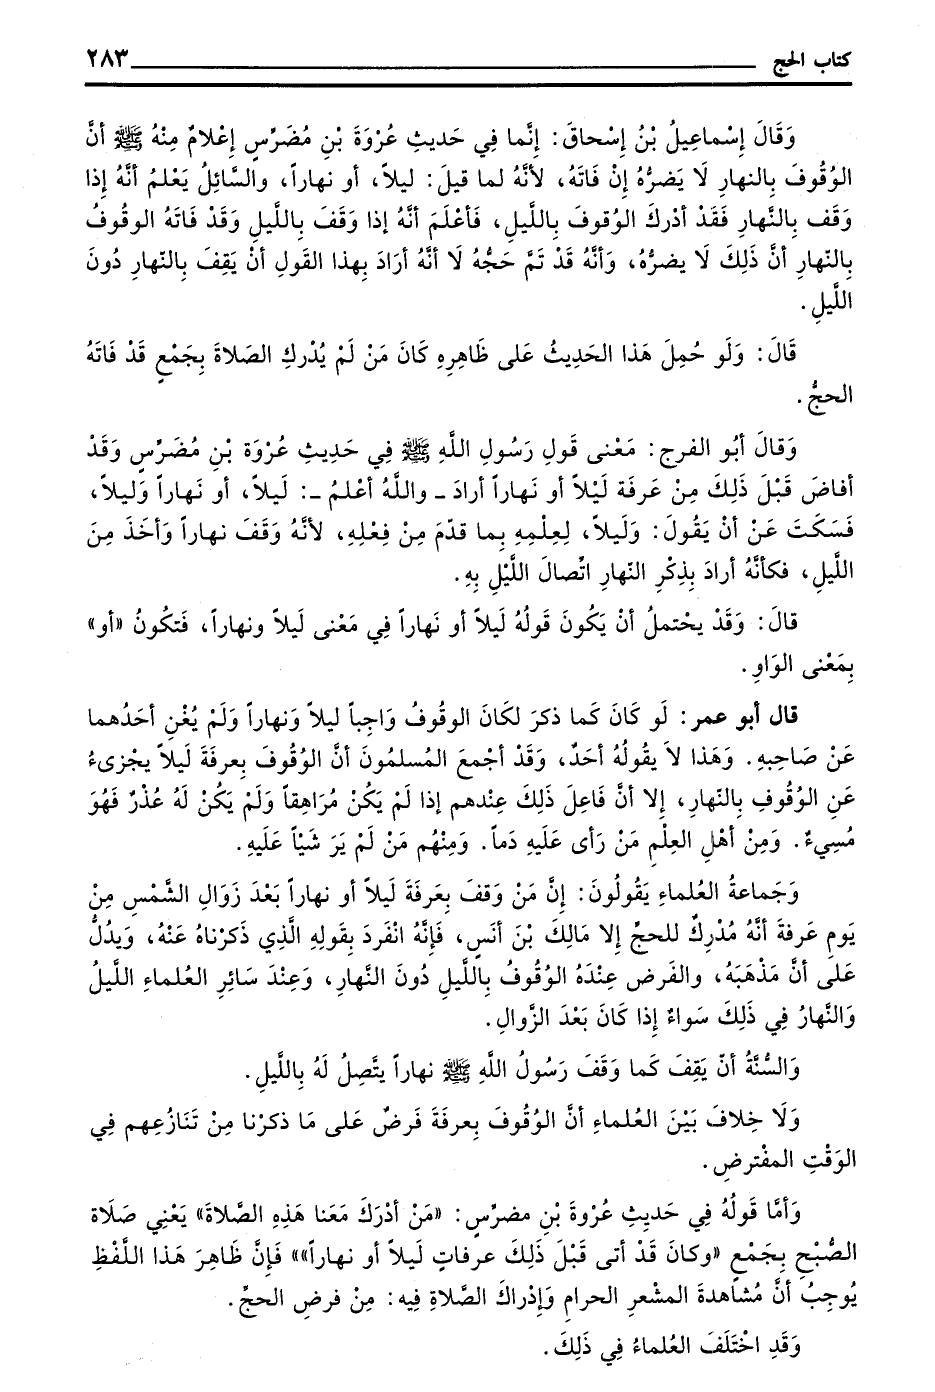 كتاب الحج ٢٨٣
وَقَالَ إِسْماعِيلُ بْنُ إِسْحاقَ: إِنَّما فِي حَديثِ عُرْوَةَ بْنِ مُضَرِّسٍ إِعْلامٌ مِنْهُ ﷺ أَنَّ
الوُقُوفَ بِالنهارِ لَا يَضرُّهُ إِنْ فَاتَهُ، لأنَّهُ لما قيلَ: ليلاً، أو نهاراً، والسَّائِلُ يَعْلمُ أنَّهُ إذا
وَقَف بِالنَّهارِ فَقَدْ أدْركَ الوُقوفَ بِاللَّيلِ، فَأعْلَمَ أنَّهُ إذا وَقَفَ بِاللَّيلِ وَقَدْ فَاتَهُ الوقُوفُ
بِالنّهارِ أنَّ ذَلِكَ لَا يضرُّهُ، وَأنَّهُ قَدْ تَمَّ حَجُّهُ لَا أنَّهُ أرَادَ بِهذا القَولِ أنْ يَقِفَ بِالنّهارِ دُونَ
اللَّيلِ.
قَالَ: وَلَو حُمِلَ هَذا الحَديثُ عَلى ظَاهِرِهِ كَانَ مَنْ لَمْ يُدْركِ الصَلاةَ بِجَمْعٍ قَدْ فَاتَهُ
الحجُّ.
وَقالَ أبُو الفرجِ: مَعْنى قَولِ رَسُولِ اللَّهِ ﷺ فِي حَدِيثِ عُرْوَةَ بْنِ مُضَرِّسٍ وَقَدْ
أفاضَ قَبْلَ ذَلِكَ مِنْ عَرفَة لَيْلاً أو نَهاراً أرادَ ـ واللَّهُ أعْلمُ ـ: لَيلاً، أو نَهاراً وَليلاً،
فَسَكَتَ عَنْ أنْ يَقُولَ: وَلَيلاً، لِعِلْمِهِ بِما قدّمَ مِنْ فِعْلِهِ، لأنَّهُ وَقَفَ نهاراً وَأخَذَ مِنَ
اللَّيلِ، فكأنَّهُ أرادَ بِذِكْرِ النّهارِ اتِّصالَ اللَّيْلِ بِهِ.
قالَ: وَقَدْ يحْتملُ أنْ يَكُونَ قَولُهُ لَيلاً أو نَهاراً فِي مَعْنى لَيلاً ونهاراً، فَتكُونُ «أو»
بِمَعْنى الوَاوِ.
قال أبو عمر: لَو كَانَ كَما ذكرَ لكَانَ الوقُوفُ وَاجِباً ليلاً وَنهاراً وَلَمْ يُغْنِ أحَدُهما
عَنْ صَاحِبهِ. وَهَذا لاَ يَقُولُهُ أحَدٌ، وَقَدْ أجْمعَ المُسلمُونَ أنَّ الوُقُوفَ بِعرفَةَ لَيلاً يجْزىءُ
عَنِ الوُقُوفِ بِالنّهارِ، إلا أنَّ فَاعِلَ ذَلِكَ عِنْدهم إذا لَمْ يكُنْ مُرَاهِقاً وَلَمْ يَكُنْ لَهُ عُذْرٌ فَهُوَ
مُسِيءٌ. وَمِنْ أهْلِ العِلْمِ مَنْ رَأى عَلَيهِ دَماً. وَمِنْهُم مَنْ لَمْ يَرَ شَيْاً عَلَيهِ.
وَجَماعةُ العُلماءِ يَقُولُونَ: إنَّ مَنْ وَقفَ بِعَرفَةَ لَيلاً أو نهاراً بَعْدَ زَوَالِ الشَّمْسِ مِنْ
يَومِ عَرفَةَ أنَّهُ مُدْرِكٌ للحجِّ إلا مَالِكَ بْنَ أنَسٍ، فَإنَّهُ انْفَردَ بِقَولِهِ الَّذِي ذَكَرْناهُ عَنْهُ، وَيدُلُّ
عَلى أنَّ مَذْهَبَهُ، والفَرض عِنْدَهُ الوُقُوفُ بِاللَّيلِ دُونَ النَّهارِ، وَعِنْدَ سَائِرِ العُلماءِ اللَّيلُ
وَالنَّهارُ فِي ذَلِكَ سَواءٌ إذا كَانَ بَعْدَ الزَّوالِ.
وَالسُّنَّةُ أنّ يَقِفَ كَما وَقَفَ رَسُولُ اللَّهِ ﷺ نهاراً يتَّصِلُ لَهُ بِاللَّيلِ.
وَلَا خِلافَ بَيْنَ العُلماءِ أنَّ الوُقُوفَ بِعرفَةَ فَرضٌ عَلى مَا ذكرْنا مِنْ تَنَازُعِهم فِي
الوَقْتِ المفْترضِ.
وَأمَّا قَولُهُ فِي حَدِيثِ عُرْوةَ بْنِ مضرِّسٍ: «مَنْ أدْرَكَ مَعَنا هَذِهِ الصَّلاةَ» يَعْنِي صَلَاةَ
الصُّبْحِ بِجَمْعٍ «وكانَ قَدْ أتى قَبْلَ ذَلِكَ عرفاتٍ لَيلاً أو نهاراً»» فَإنَّ ظَاهِرَ هَذا اللَّفْظِ
يُوجِبُ أنَّ مُشاهدةَ المشْعرِ الحرامِ وَإدْراكَ الصَّلاةِ فِيه: مِنْ فرضِ الحجِّ.
وَقَدِ اخْتَلَفَ العُلماءُ فِي ذَلِكَ.